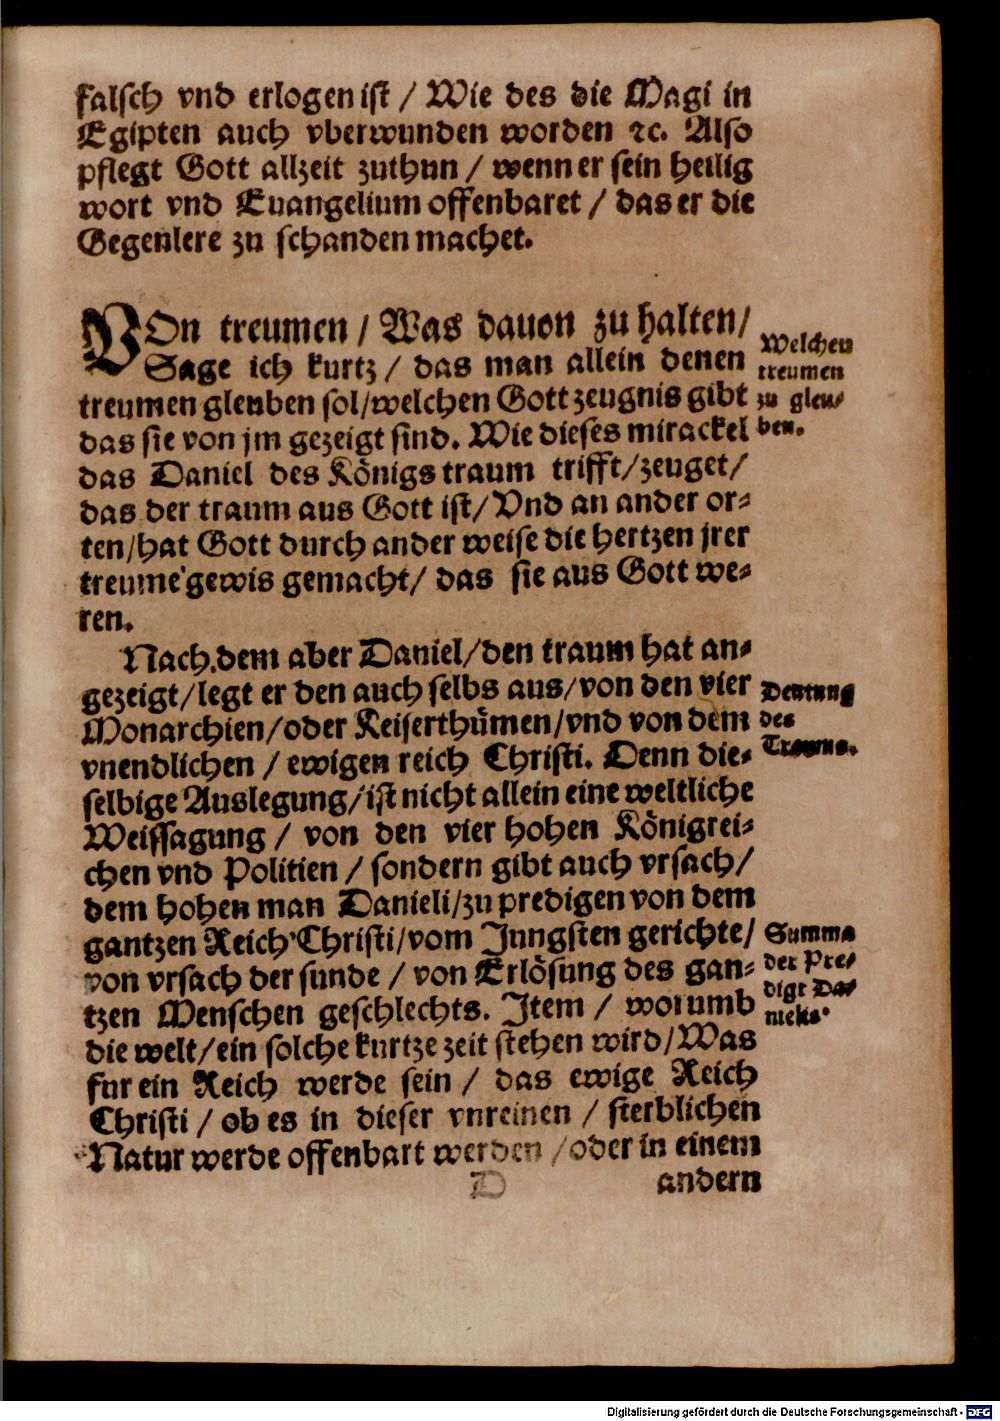 falsch vnd erlogen ist / Wie des die Magi in
Egipten auch vberwunden worden ꝛc. Also
pflegt Gott allzeit zuthun / wenn er sein heilig
wort vnd Euangelium offenbaret / das er die
Gegenlere zu schanden machet.
VOn treumen / Was dauon zu halten /
Sage ich kurtz / das man allein denen
treumen gleuben sol / welchen Gott zeugnis gibt
das sie von jm gezeigt sind. Wie dieses mirackel
das Daniel des Königs traum trifft / zeuget /
das der traum aus Gott ist / Vnd an ander or-
ten / hat Gott durch ander weise die hertzen jrer
treume gewis gemacht / das sie aus Gott we-
ren.
Welchen
treumen
zu gleu-
ben.
Nach dem aber Daniel / den traum hat an-
gezeigt / legt er den auch selbs aus / von den vier
Monarchien / oder Keiserthümen / vnd von dem
vnendlichen / ewigen reich Christi. Denn die-
selbige Auslegung / ist nicht allein eine weltliche
Weissagung / von den vier hohen Königrei-
chen vnd Politien / sondern gibt auch vrsach /
dem hohen man Danieli / zu predigen von dem
gantzen Reich Christi / vom Jungsten gerichte /
von vrsach der sunde / von Erlösung des gan-
tzen Menschen geschlechts. Item / worumb
die welt / ein solche kurtze zeit stehen wird / Was
fur ein Reich werde sein / das ewige Reich
Christi / ob es in dieser vnreinen / sterblichen
Natur werde offenbart werden / oder in einem
Deutung
des
Traums.
Summa
der Pre-
digt Da-
niels.
D
andern
Digitalisierung gefördert durch die Deutsche Forschungsgemeinschaft - DFG